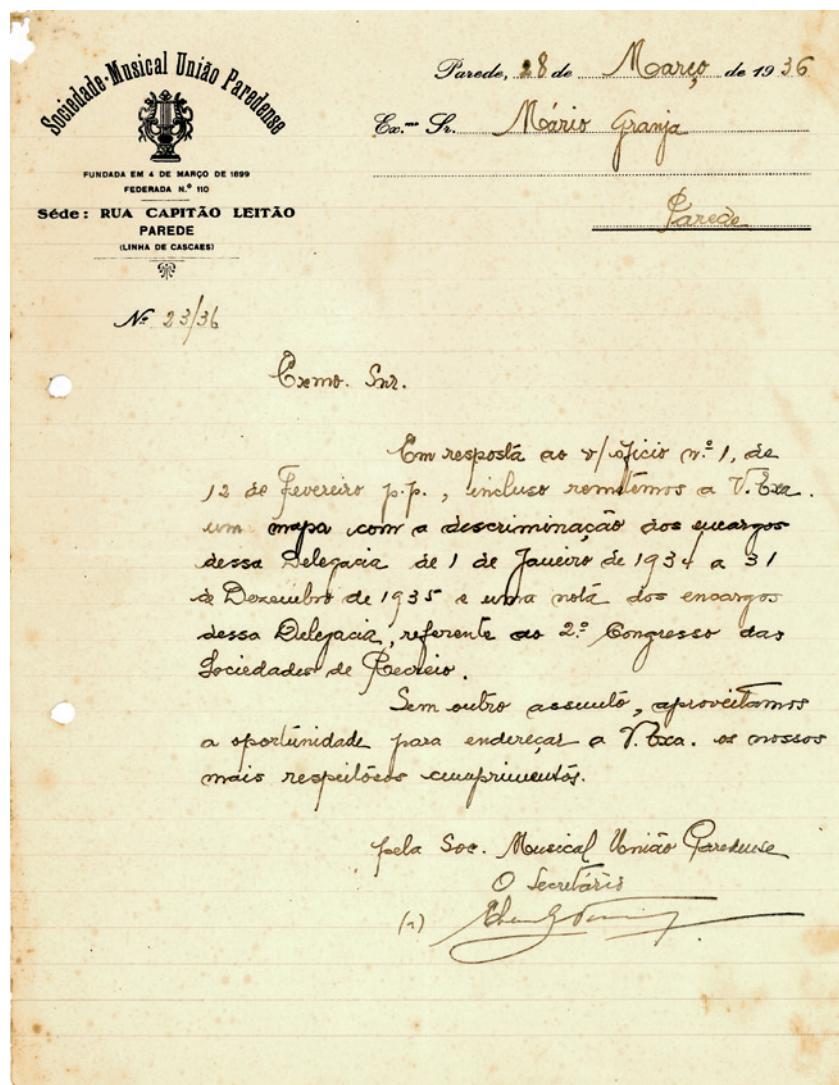 Sociedade-Musical União Paredense
FUNDADA EM 4 DE MARÇO DE 1899
FEDERADA N.º 110
Séde: RUA CAPITÃO LEITÃO
PAREDE
(LINHA DE CASCAES)
Parede, 28 de Março de 1936
Ex.mo Sr. Mário Granja
Parede
Nº 23/36
Exmo. Snr.
Em resposta ao v/ofício n.º 1, de
12 de Fevereiro p.p., incluso remetemos a V. Exa.
um mapa com a descriminação dos encargos
dessa Delegacia de 1 de Janeiro de 1934 a 31
de Dezembro de 1935 e uma nota dos encargos
dessa Delegacia, referente ao 2.º Congresso das
Sociedades de Recreio.
Sem outro assunto, aproveitamos
a oportunidade para endereçar a V. Exa. os nossos
mais respeitosos cumprimentos.
pela Soc. Musical União Paredense
O Secretário
(a)